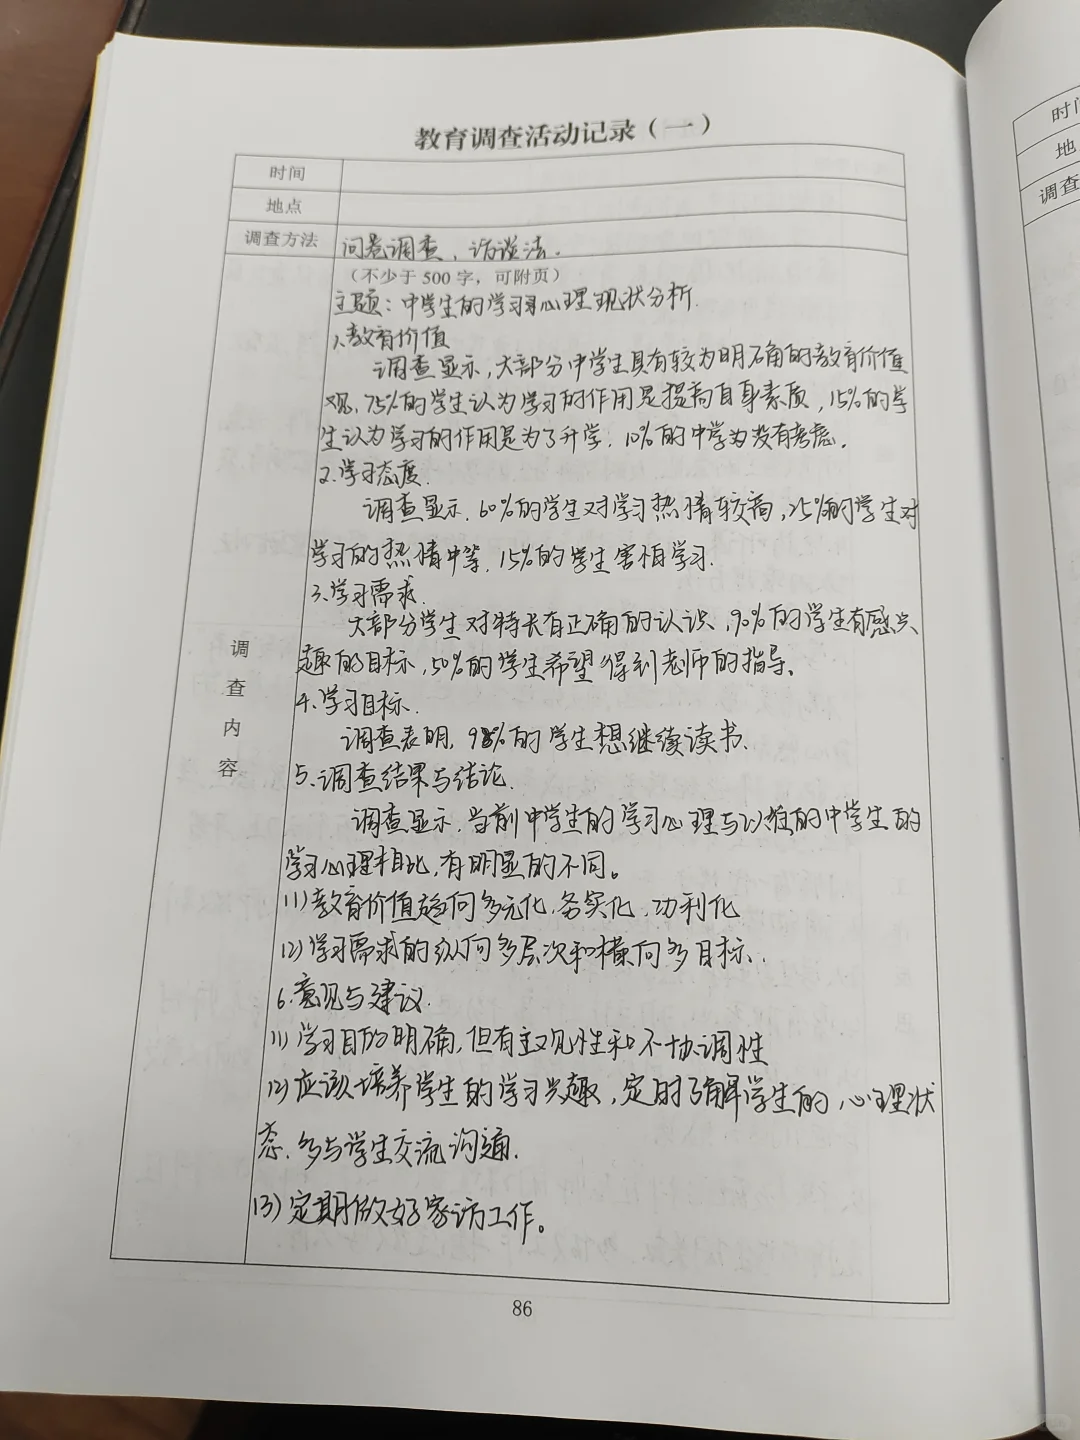 教育调查活动记录（一）
时间
地点
调查方法 问卷调查、访谈法.
（不少于 500 字，可附页）
主题：中学生的学习心理现状分析.
1、教育价值
调查显示，大部分中学生具有较为明确的教育价值
观，75%的学生认为学习的作用是提高自身素质，15%的学
生认为学习的作用是为了升学. 10%的中学为没有考虑.
2.学习态度.
调查显示. 60%的学生对学习热情较高，25%的学生对
学习的热情中等. 15%的学生害怕学习.
3、学习需求.
大部分学生对特长有正确的认识，90%的学生有感兴
趣的目标，50%的学生希望得到老师的指导。
4.学习目标.
调查表明，98%的学生想继续读书.
5、调查结果与结论.
调查显示. 当前中学生的学习心理与以往的中学生的
学习心理相比，有明显的不同。
(1)教育价值趋向多元化、务实化、功利化
(2)学习需求的纵向多层次和横向多目标.
6.意见与建议.
(1)学习目的明确，但有主观性和不协调性
(2)应该培养学生的学习兴趣，定时了解学生的心理状
态. 多与学生交流沟通.
(3)定期做好家访工作。
调
查
内
容
86
时间
地
调查